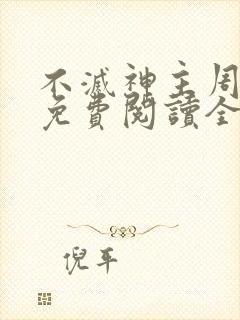 不滅神主周
免費閱讀全
倪平